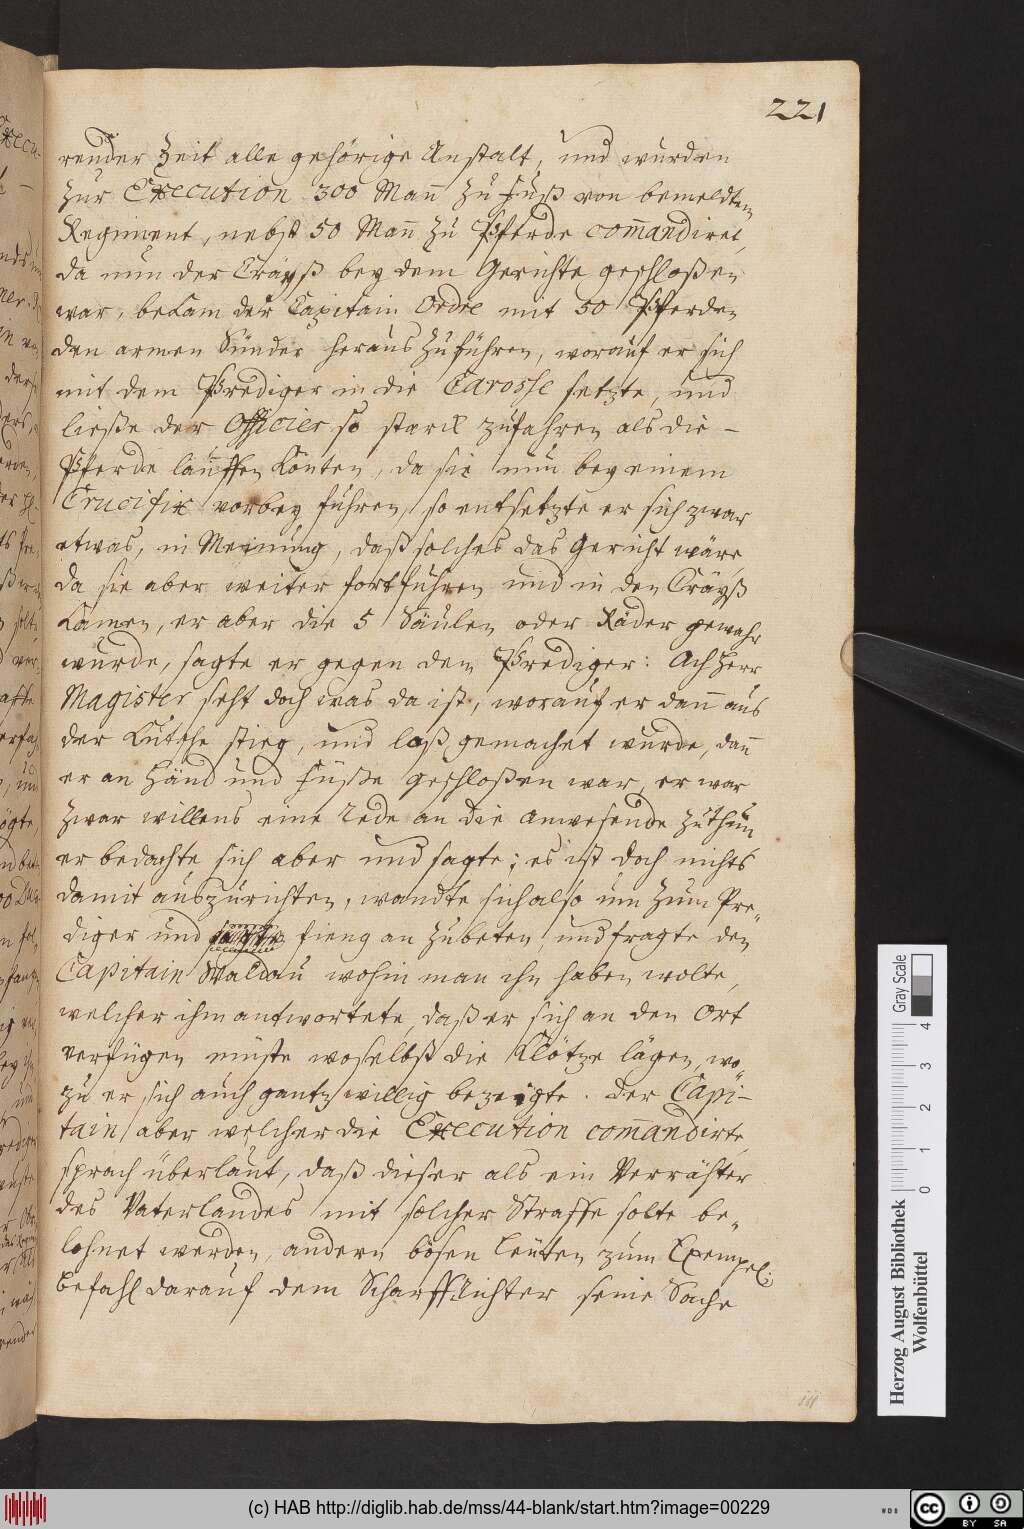 221
render Zeit alle gehörige Anstalt, und wurden
zur Execution 300 Mañ zu Fuß von bemeldten
Regiment, nebst 50 Mañ zu Pferde com̃andiret,
da nun der Cräyß bey dem Gerichte geschloßen
war, bekam der Capitain Ordre mit 50 Pferden
den armen Sünder heraus zuführen, worauf er sich
mit dem Prediger in die Carosse setzte, und
ließe der Officier so starck zufahren als die –
Pferde lauffen konten, da sie nun bey einem
Crucifix vorbey fuhren, so entsetzte er sich zwar
etwas, in Meinung, daß solches das Gericht wäre,
da sie aber weiter fortfuhren und in den Cräyß
kamen, er aber die 5 Säulen oder Räder gewahr
wurde, sagte er gegen den Prediger: Ach Herr
Magister seht doch was da ist, worauf er dañ aus
der Kutsche stieg, und loß gemachet wurde, dañ
er an Händ und Füsse geschloßen war, er war
zwar willens eine Rede an die anwesende zuthun
er bedachte sich aber und sagte; es ist doch nichts
damit auszurichten, wandte sich also um zum Pre„
diger und fieng an zubeten, und fragte den
Capitain Waldau wohin man ihn haben wolte,
welcher ihm antwortete, daß er sich an den Ort
verfügen müste woselbst die Klötze lägen, wo„
zu er sich auch gantz willig bezeigte. Der Capi–
tain aber welcher die Execution com̃andirte,
sprach überlaut, daß dieser als ein Verräther
des Vaterlandes mit solcher Straffe solte be„
lohnet werden, andern bösen Leuten zum Exempel;
befahl darauf dem Scharffrichter seine Sache
Herzog August Bibliothek
Wolfenbüttel
0 1 2 3 4
Gray Scale
(c) HAB http://diglib.hab.de/mss/44-blank/start.htm?image=00229
WDB
CC BY SA